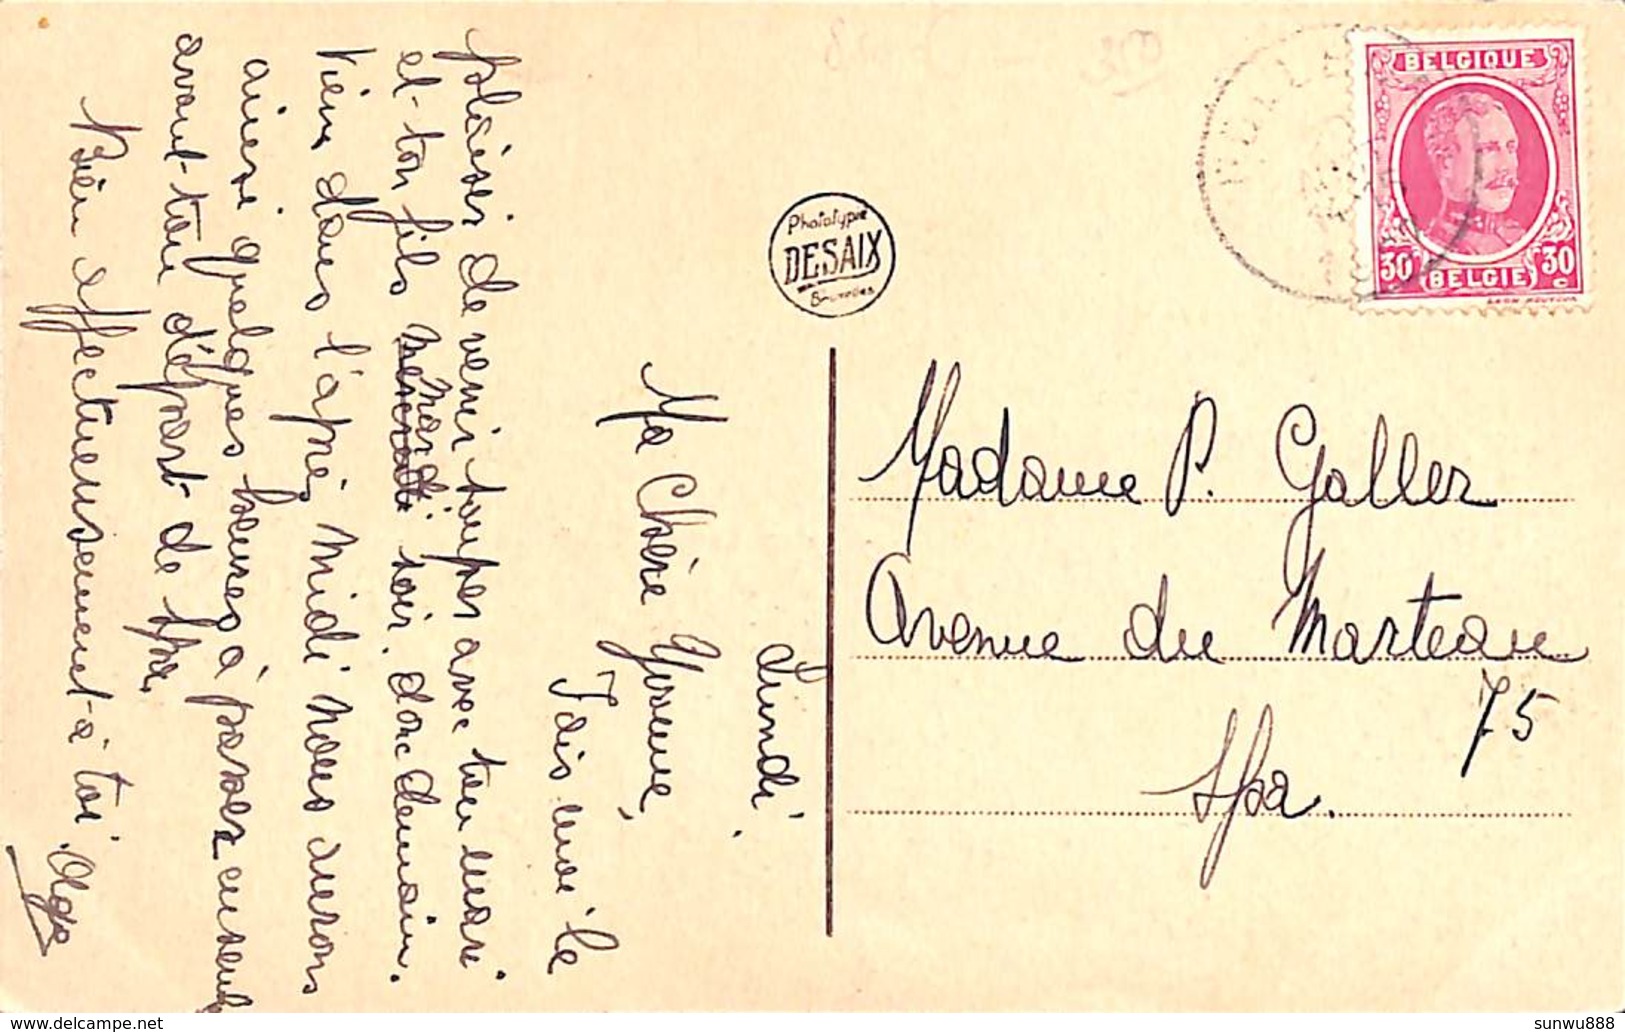 Lundi.
Ma Chère Yvonne,
Fais moi le
plaisir de venir souper avec ton mari
et ton fils mercredi mardi soir, donc demain.
Viens dans l'après midi nous aurons
ainsi quelques heures à passer ensemble
avant ton départ de Spa.
Bien affectueusement à toi.
Olga
Phototypie
DESAIX
Bruxelles
BELGIQUE
30 BELGIE 30
c
Madame P. Galler
Avenue du Marteau
75
Spa.
sunwu888